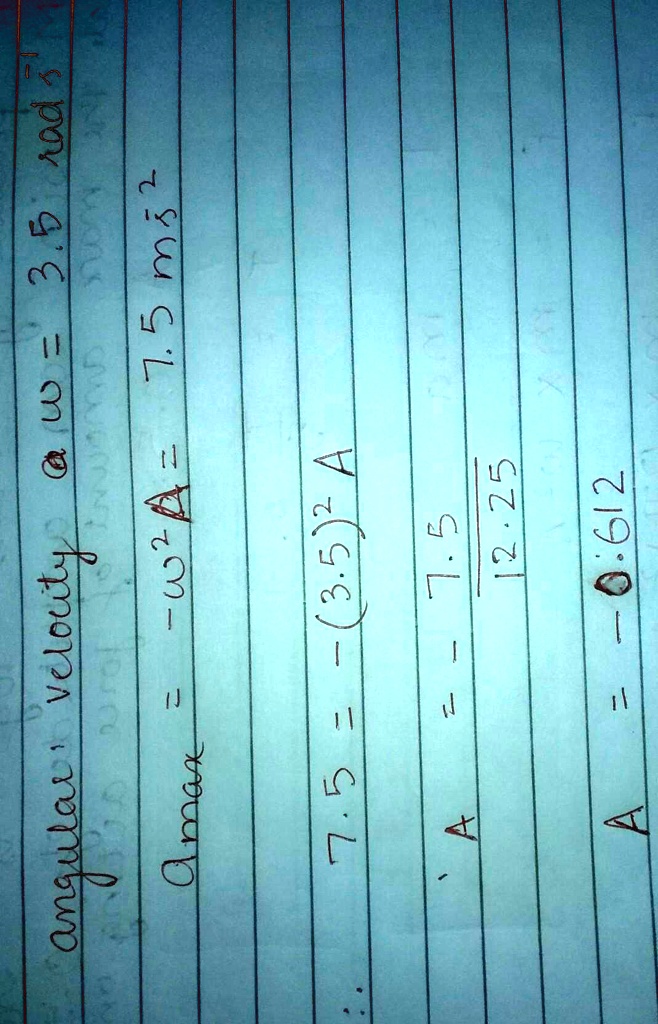 angular velocity @ ω = 3.5 rad s⁻¹
a max = -ω² A = 7.5 m s⁻²
∴ 7.5 = -(3.5)² A
A = - 7.5
12.25
A = - 0.612